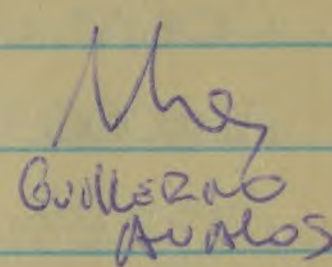 GUILLERMO
AVALOS